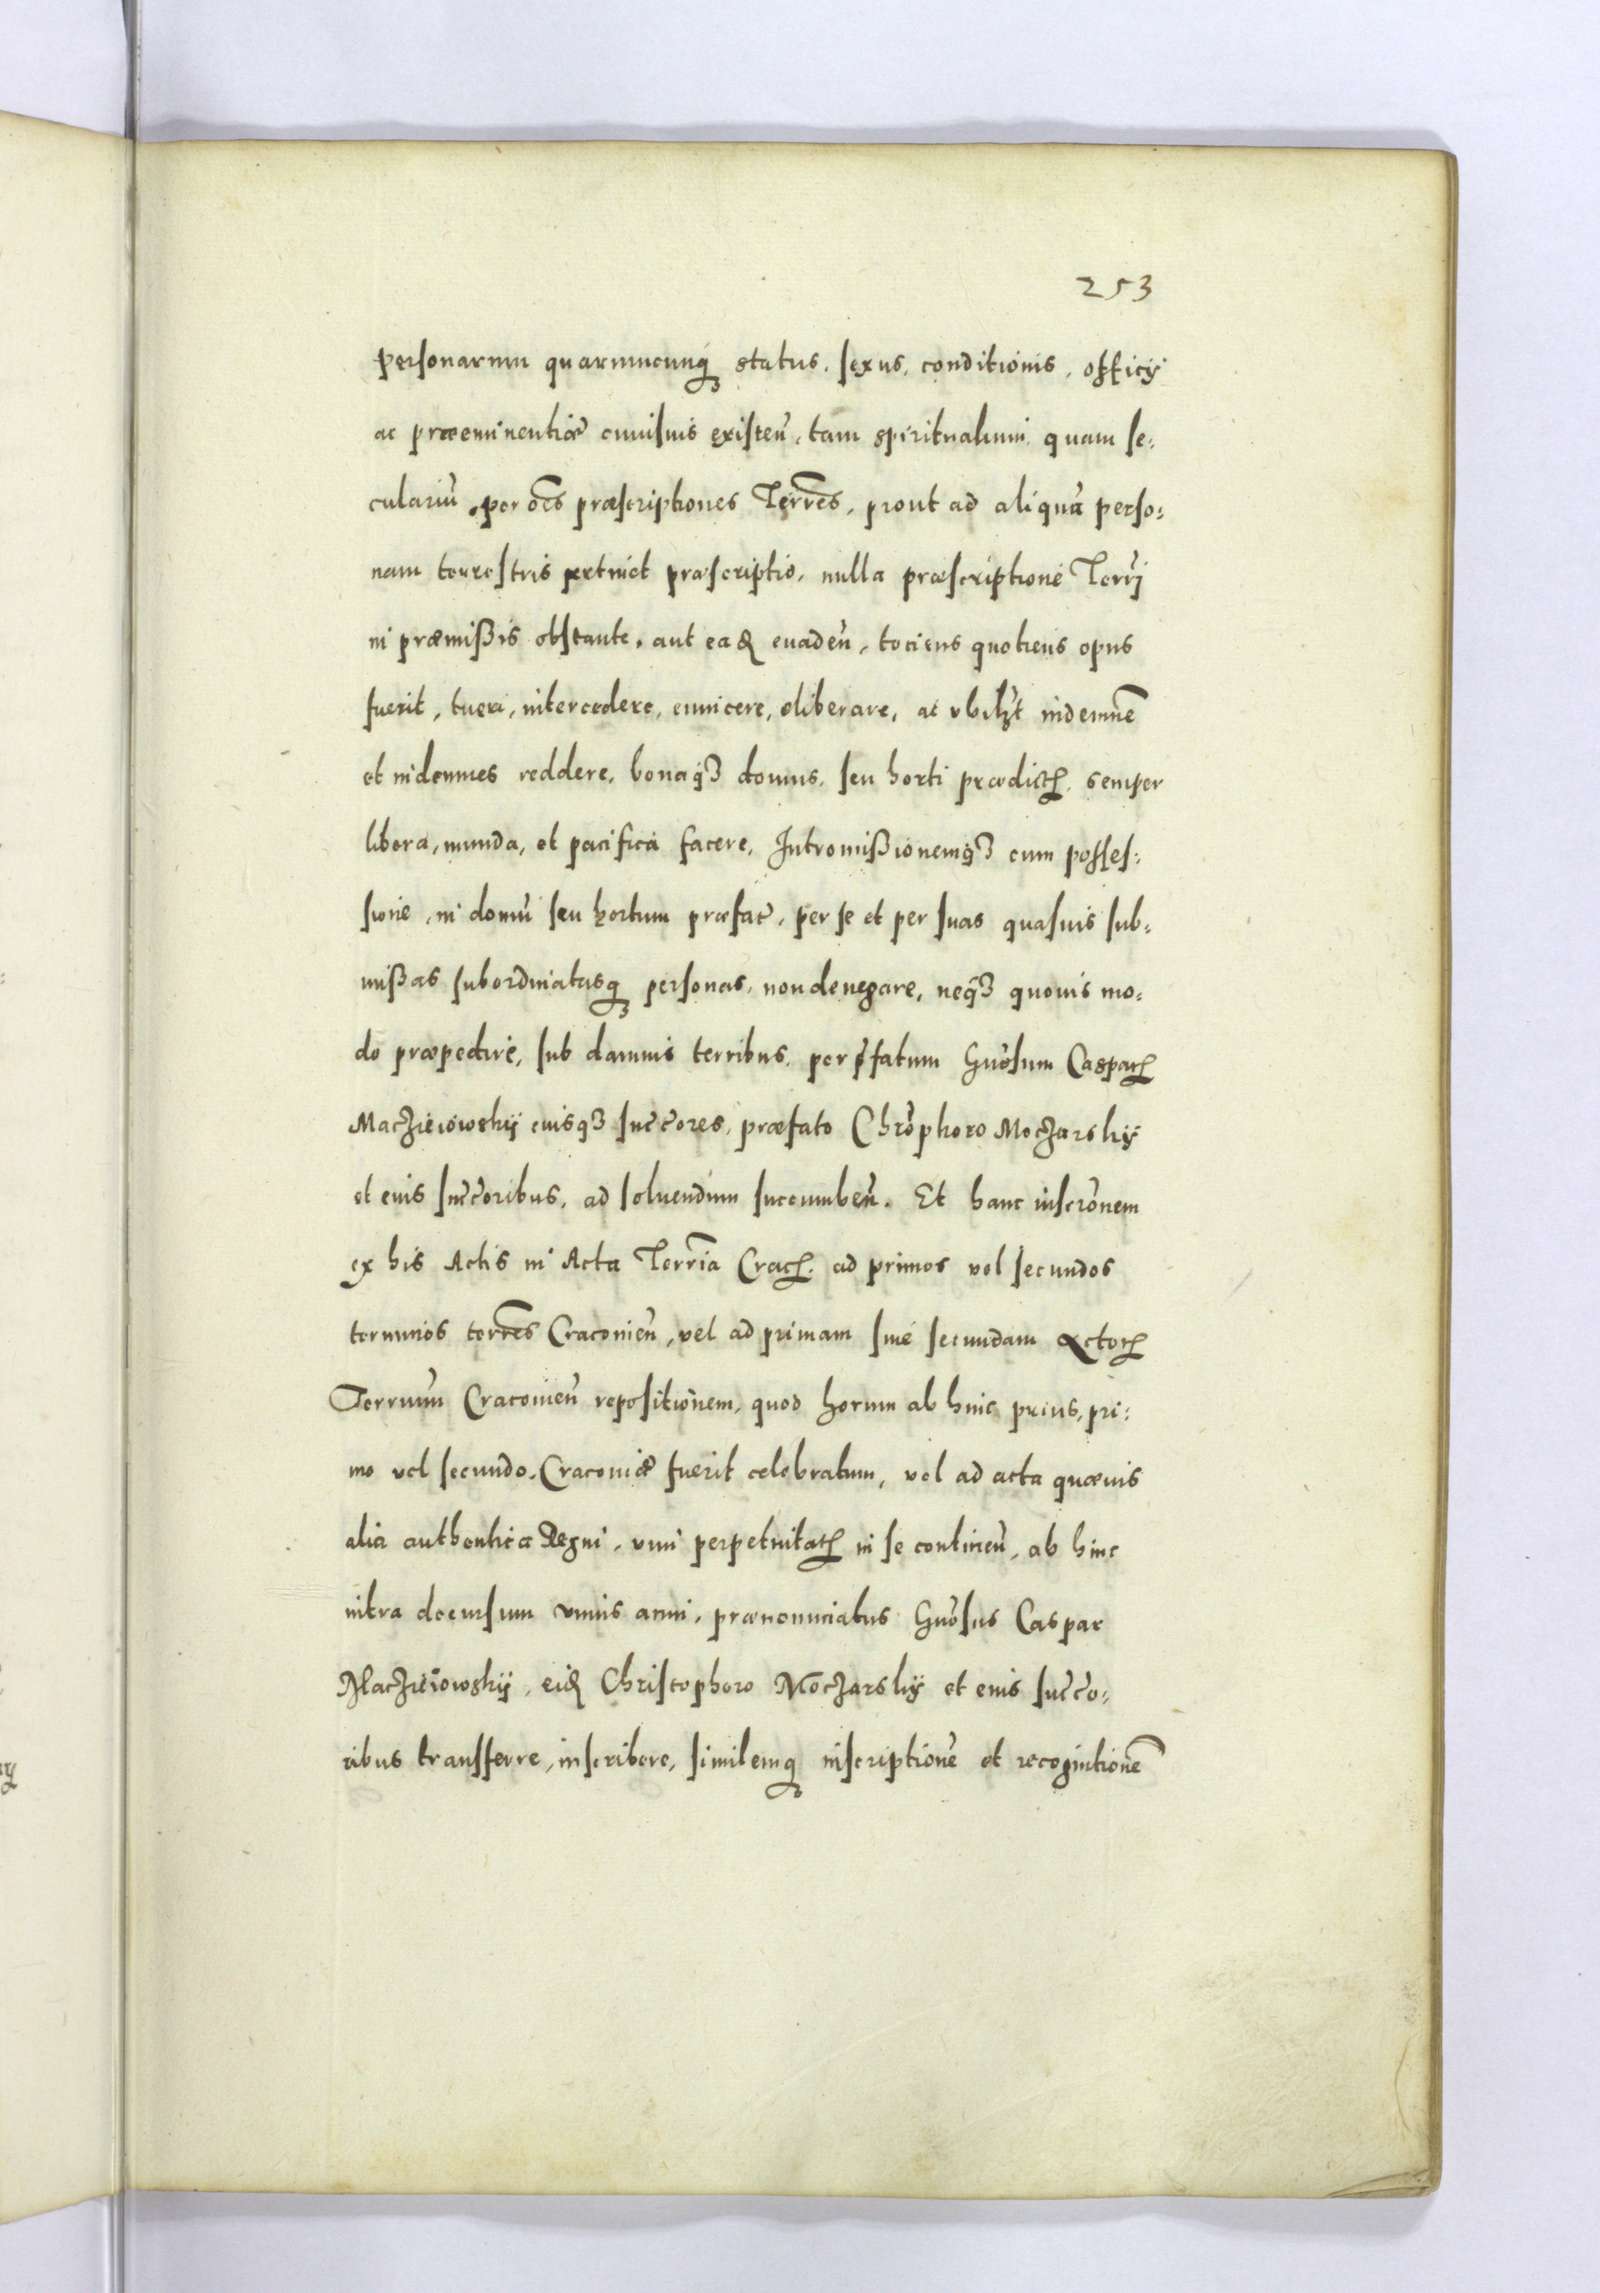 253
personarum quarumcunq₃ status, sexus, conditionis, officÿ
ac præeminentiæ cuiusuis existeñ, tam spiritualium quam se⸗
culariũ, per oẽs præscriptiones Terrẽs, prout ad aliquã perso⸗
nam terrestris pertinet præscriptio, nulla præscriptione Terrj̃
in præmißis obstante, aut eaꝶ euadeñ, tociens quotiens opus
fuerit, tueri, intercedere, euincere, eliberare, ac vbilꝫt indemnẽ
et indemnes reddere, bonaqꝫ domus, seu horti prædictꝭ, semper
libera, munda, et pacifica facere, Intromißionemqꝫ cum posses⸗
sione, in domũ seu hortum præfat̃, per se et per suas quasuis sub⸗
mißas subordinatasq₃ personas, non denegare, neqꝫ quouis mo⸗
do præpedire, sub damnis terribus, per p̃fatum Gñosum Casparꝭ
Macżieiowskÿ eiusqꝫ succ̃ores, præfato Chrõphoro Moczarskÿ
et eius succ̃oribus, ad soluendum succumbeñ. Et hanc inscrõnem
ex his Actis in Acta Terrĩa Cracꝭ. ad primos vel secundos
terminos terrẽs Cracouieñ, vel ad primam siue secundam Actorꝭ
Terrium̃ Cracouieñ repositionem, quod horum ab hinc prius, pri⸗
mo vel secundo, Cracouiæ fuerit celebratum, vel ad acta quæuis
alia authentica Regni, vim perpetuitatꝭ in se contineñ, ab hinc
intra decursum vnius anni, prænonciatus Gñosus Caspar
Macżieiowskÿ, eiꝶ Christophoro Moczarskÿ et eius succ̃o⸗
ribus transferre, inscribere, similemq₃ inscriptionẽ et recognitionẽ